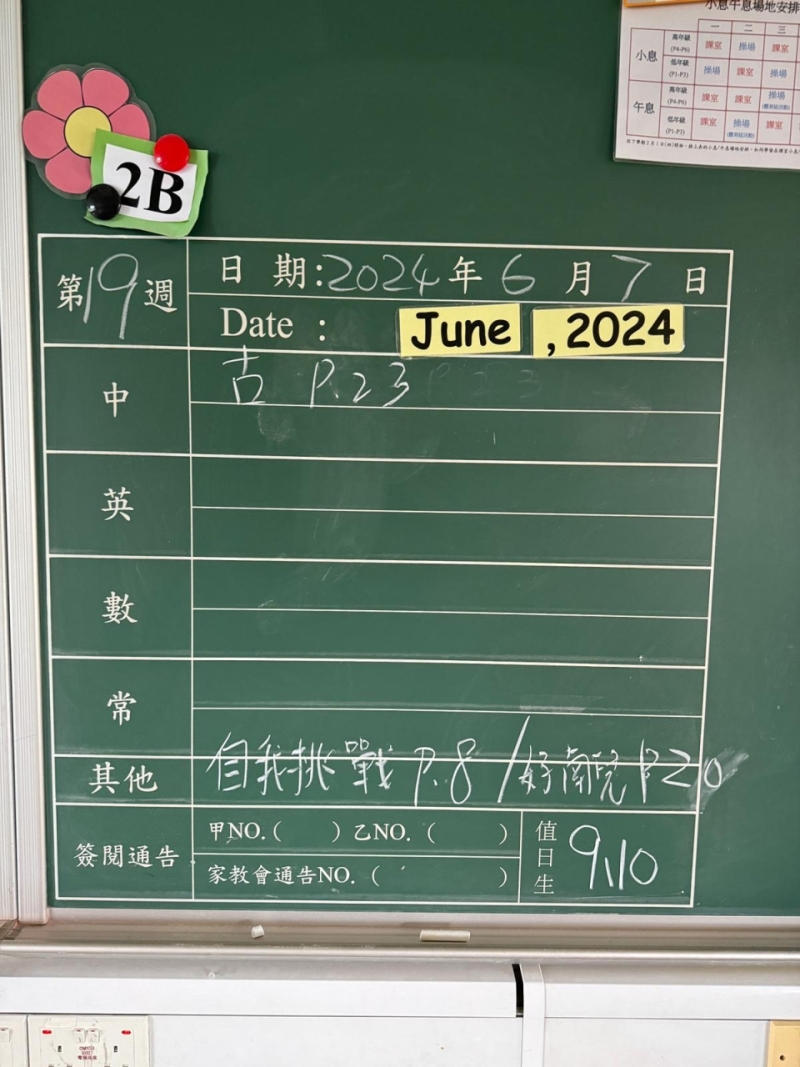 小息午息場地安排
一 二 三
小息 高年級 (P4-P6) 課室 操場 課室
低年級 (P1-P3) 操場 課室 操場
午息 高年級 (P4-P6) 課室 課室 操場
低年級 (P1-P3) 課室 操場 課室
2B
第19週
日期:2024年6月7日
Date : June , 2024
中 古 P.23
英
數
常
其他 自我挑戰 P.8 / 好南兒 P20
簽閱通告 甲NO.( ) 乙NO.( )
家教會通告NO.( )
值日生 9,10